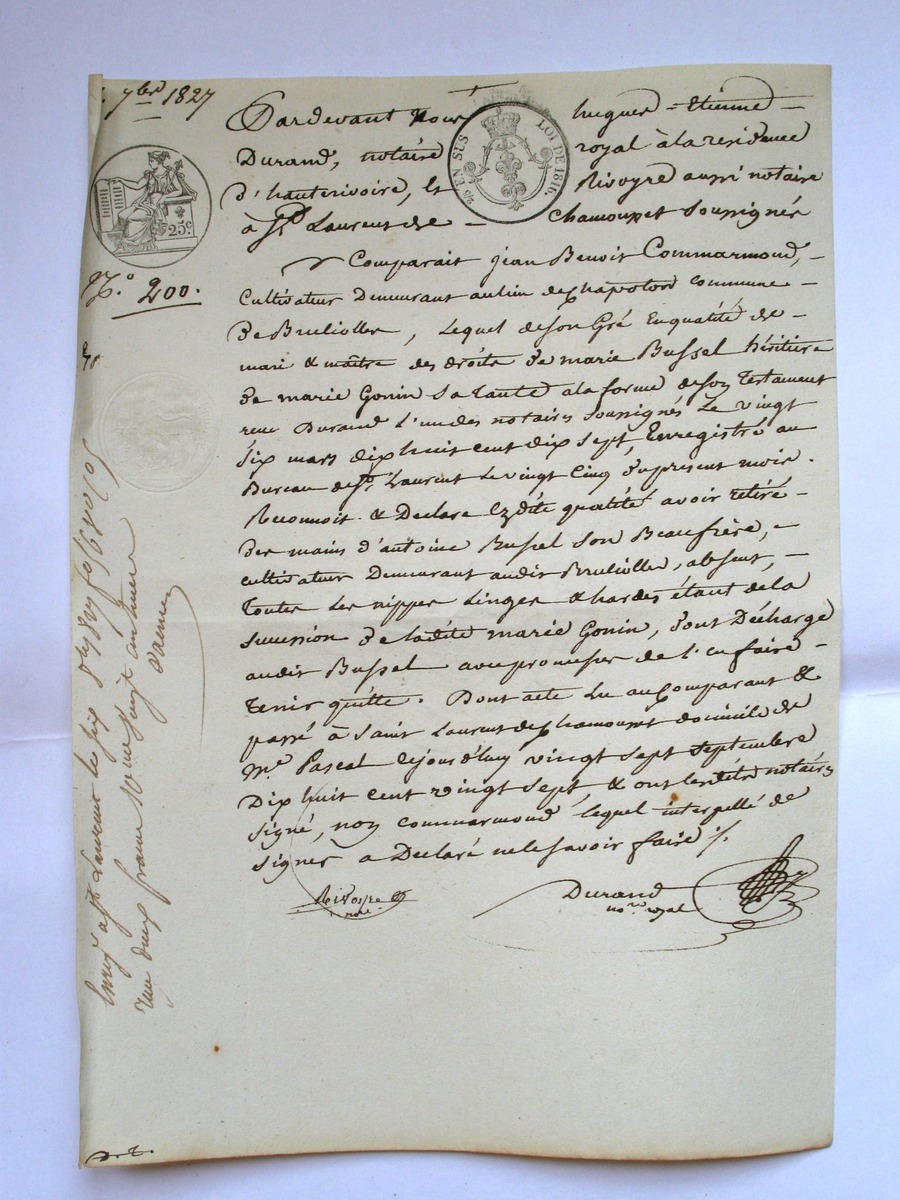 7bre 1827
25 EN SUS
LOI DE 1816
25c.
No. 200.
Pardevant Nous hugues Etienne
Durand, notaire royal à la residence
d'hauterivoire, et Rivoyre aussi notaire
à St Laurent de Chamousset soussignés
Comparait jean Benoit Commarmond,
Cultivateur Demeurant au lieu de chapoton commune
De Brulioller, Lequel de son Gré En qualité de
mari & maître des droits De marie Bussel héritiere
De marie Gonin Sa tante à la forme de son Testament
recu Durand L'un des notaires soussignés Le vingt
six mars dix huit cent dix sept, Enregistré au
Bureau de St Laurent Le vingt Cinq du present mois.
Reconnoit & Declare Esdite qualité avoir retiré
Des mains d'antoine Bussel son Beaufrère,
cultivateur Demeurant audit Brulioller, absent,
Toutes Les nippes Linges & hardes étant de la
succession De ladite marie Gonin, dont Décharge
audit Bussel avec promesses de L'en faire
tenir quitte. Dont acte Lu au Comparant &
passé à Saint Laurent de chamousset domicile de
Me Pascal cejourd'huy vingt sept septembre
Dix huit cent vingt sept, & ont lesdits notaires
signé, non Commarmond lequel interpellé de
signer a Declaré ne le savoir faire
Rivoyre
nore
Durand
nore royal
Enreg à St Laurent le six 8bre 1827 fo
recu deux francs vingt centimes